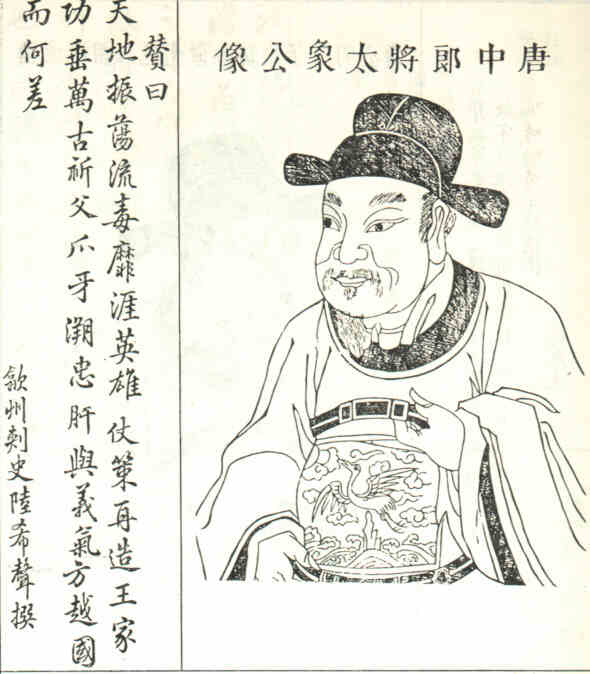 唐中郎將太象公像
贊曰
天地振蕩流毒靡涯英雄仗策再造王家
功垂萬古祈父爪牙溯忠肝與義氣方越國
而何差
歙州刺史陸希聲撰